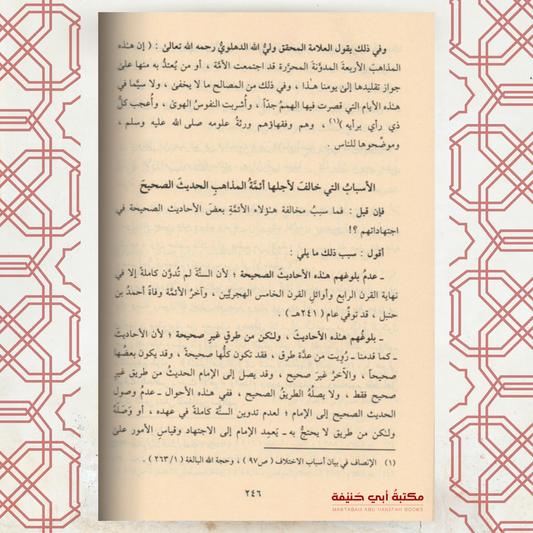 وفي ذلك يقول العلامة المحقق وليُّ الله الدهلويُّ رحمه الله تعالى : ( إن هذه
المذاهبَ الأربعةَ المدوَّنةَ المحرَّرة قد اجتمعت الأمَّة ، أو من يُعتدُّ به منها على
جواز تقليدها إلى يومنا هذا ، وفي ذلك من المصالح ما لا يخفى ، ولا سيَّما في
هذه الأيام التي قصرت فيها الهممُ جدّاً ، وأُشربت النفوسُ الهوى ، وأُعجب كلُّ
ذي رأي برأيه )(١) ، وهم وفقهاؤهم ورثةُ علومه صلى الله عليه وسلم ،
وموضِّحوها للناس .
الأسبابُ التي خالفَ لأجلها أئمَّةُ المذاهب الحديثَ الصحيحَ
فإن قيل : فما سببُ مخالفة هؤلاء الأئمَّةِ بعضَ الأحاديث الصحيحة في
اجتهاداتهم ؟!
أقول : سبب ذلك ما يلي :
ـ عدمُ بلوغهم هذه الأحاديثَ الصحيحة ؛ لأن السنَّة لم تُدوَّن كاملةً إلا في
نهاية القرن الرابع وأوائلِ القرن الخامس الهجريَّين ، وآخرُ الأئمَّة وفاةً أحمدُ بن
حنبل ، قد توفِّي عام ( ٢٤١هـ ) .
ـ بلوغُهم هذه الأحاديثَ ، ولكن من طرقٍ غيرِ صحيحة ؛ لأن الأحاديثَ
ـ كما قدمنا ـ رُويت من عدَّة طرق ، فقد تكون كلُّها صحيحةً ، وقد يكون بعضُها
صحيحاً ، والآخرُ غيرَ صحيح ، وقد يصل إلى الإمام الحديثُ من طريق غيرِ
صحيح فقط ، ولا يصلُهُ الطريقُ الصحيح ، ففي هذه الأحوال ـ عدمِ وصول
الحديث الصحيح إلى الإمام ؛ لعدم تدوين السنَّة كاملةً في عهده ، أو وَصَلَهُ
ولكن من طريق لا يحتجُّ به ـ يَعمِد الإمام إلى الاجتهاد وقياسِ الأمور على
(١) الإنصاف في بيان أسباب الاختلاف ( ص٩٧ ) ، وحجة الله البالغة ( ٢٦٣/١ ) .
٢٤٦
مكتبة أبي حنيفة
MAKTABAH ABU HANIFAH BOOKS